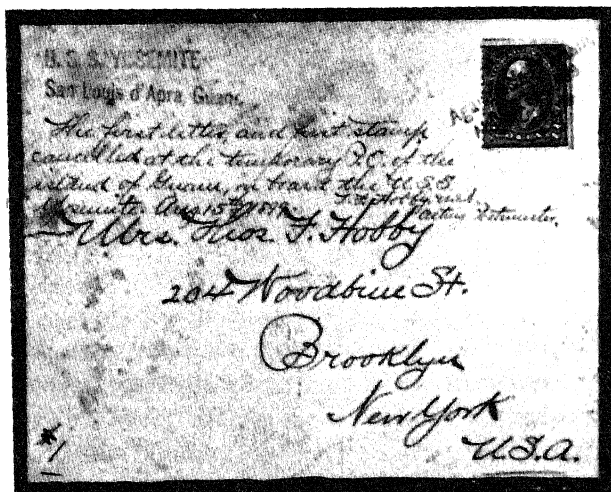 U. S. S. YOSEMITE
San Louis d'Apra, Guam,
The first letter, and first stamp
cancelled at the temporary P.O. of the
island of Guam, on board the U.S.S.
Yosemite. Aug 15th 1899.
Acting Postmaster.
Mrs. Thos. F. Hobby
204 Woodbine St.
Brooklyn
New York
U.S.A.
#1